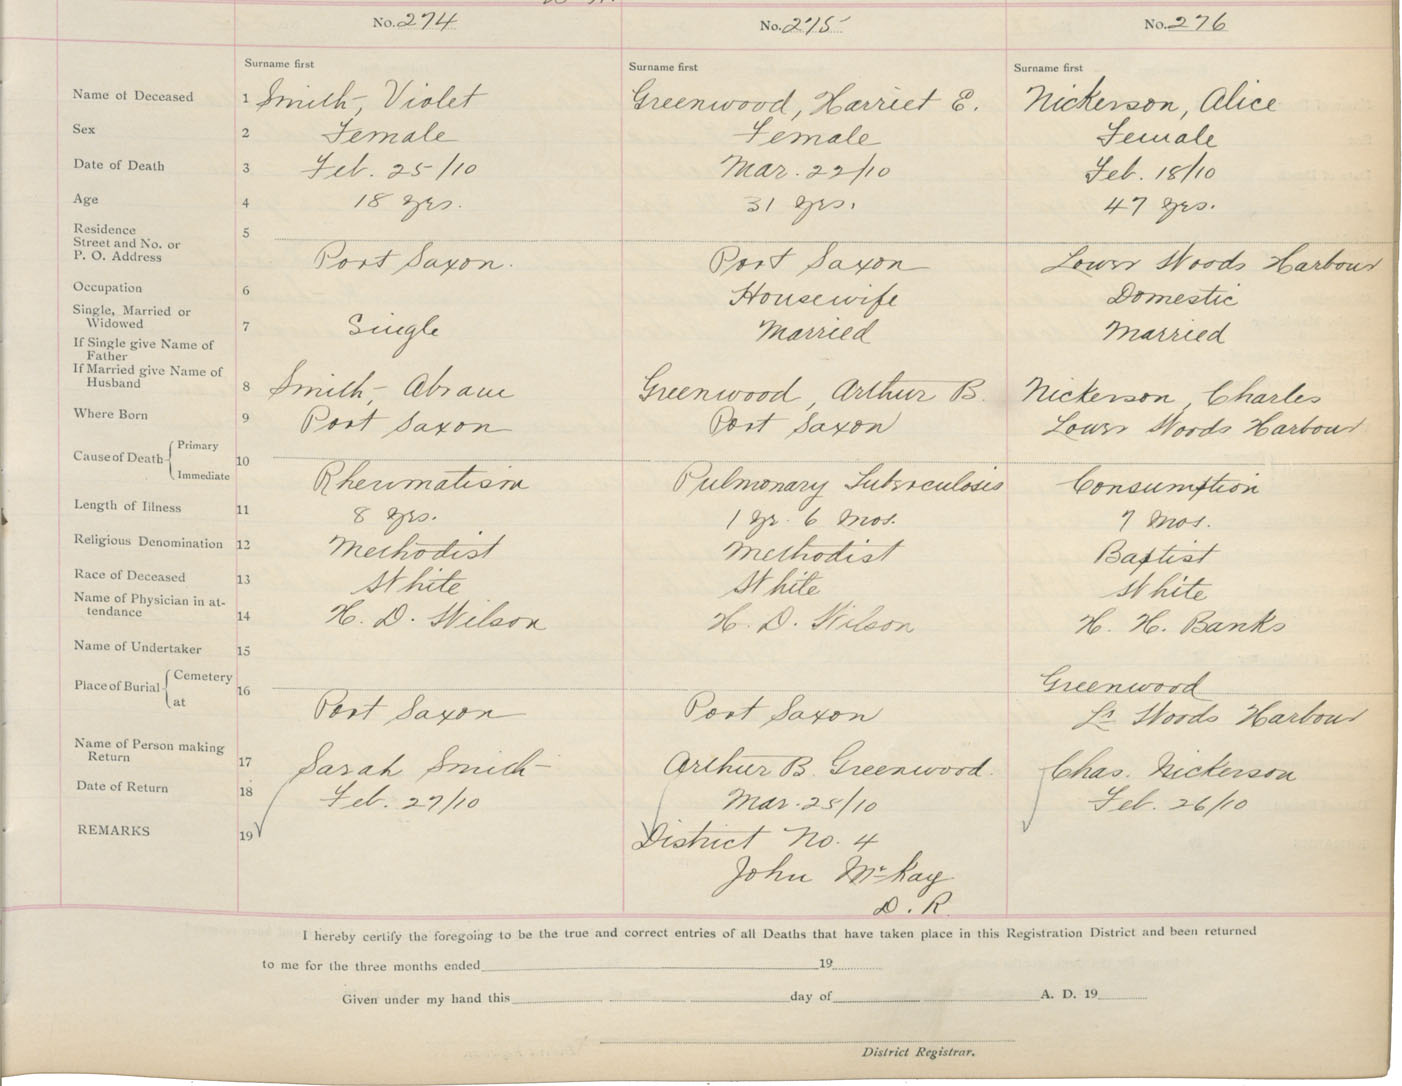 No. 274 No. 275 No. 276
Surname first Surname first Surname first
Name of Deceased 1 Smith, Violet Greenwood, Harriet E. Nickerson, Alice
Sex 2 Female Female Female
Date of Death 3 Feb. 25/10 Mar. 22/10 Feb. 18/10
Age 4 18 yrs. 31 yrs. 47 yrs.
Residence 5
Street and No. or
P. O. Address Port Saxon. Port Saxon Lower Woods Harbour
Occupation 6 Housewife Domestic
Single, Married or
Widowed 7 Single Married Married
If Single give Name of
Father
If Married give Name of
Husband 8 Smith, Abram Greenwood, Arthur B. Nickerson, Charles
Where Born 9 Port Saxon Port Saxon Lower Woods Harbour
Cause of Death Primary 10
Immediate Rheumatism Pulmonary Tuberculosis Consumtion
Length of Illness 11 8 yrs. 1 yr. 6 mos. 7 mos.
Religious Denomination 12 Methodist Methodist Baptist
Race of Deceased 13 White White White
Name of Physician in at-
tendance 14 H. D. Wilson H. D. Wilson H. H. Banks
Name of Undertaker 15
Place of Burial Cemetery 16 Greenwood
at Port Saxon Port Saxon Lr. Woods Harbour
Name of Person making
Return 17 Sarah Smith Arthur B. Greenwood. Chas. Nickerson
Date of Return 18 Feb. 27/10 Mar. 25/10 Feb. 26/10
REMARKS 19 District No. 4
John McKay
D. R.
I hereby certify the foregoing to be the true and correct entries of all Deaths that have taken place in this Registration District and been returned
to me for the three months ended 19
Given under my hand this day of A. D. 19
District Registrar.